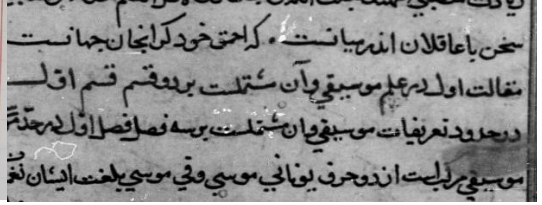 سخن با عاقلان اندر میانست • که احمق خود کرا بجان جهانست
مقالت اول در علم موسیقی و آن مشتملست بر دو قسم قسم اول
در حدود تعریفات موسیقی و ان مشتملست بر سه فصل فصل اول در حد
موسیقی مرکبست از دو حرف یونانی موسی و قی موسی بلغت ایشان